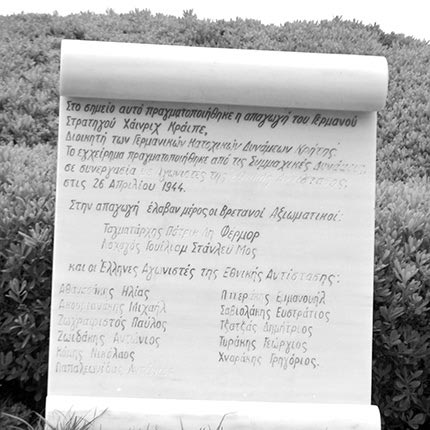 Στο σημείο αυτό πραγματοποιήθηκε η απαγωγή του Γερμανού
Στρατηγού Χάινριχ Κράιπε,
Διοικητή των Γερμανικών Κατοχικών Δυνάμεων Κρήτης.
Το εγχείρημα πραγματοποιήθηκε από τις Συμμαχικές Δυνάμεις,
σε συνεργασία με Αγωνιστές της
στις 26 Απριλίου 1944.
Στην απαγωγή έλαβαν μέρος οι Βρετανοί Αξιωματικοί:
Ταγματάρχης Πάτρικ Λη Φέρμορ
Λοχαγός Ουίλιαμ Στάνλεϋ Μος
και οι Έλληνες Αγωνιστές της Εθνικής Αντίστασης:
Αθανασάκης Ηλίας
Ακουμιανάκης Μιχαήλ
Ζωγραφιστός Παύλος
Ζωιδάκης Αντώνιος
Κόμης Νικόλαος
Παπαλεωνίδας
Πατεράκης Εμμανουήλ
Σαβιολάκης Ευστράτιος
Τζατζάς Δημήτριος
Τυράκης Γεώργιος
Χναράκης Γρηγόριος.